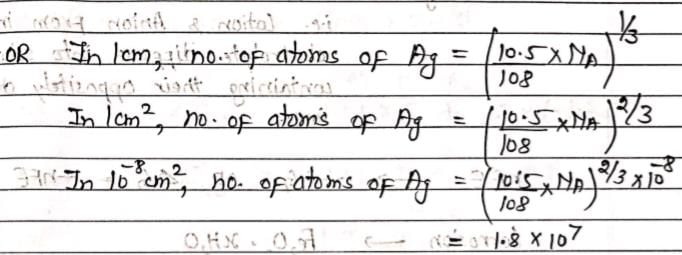 OR In 1cm, no. of atoms of Ag = (10.5/108 × NA)^1/3
In 1cm², no. of atoms of Ag = (10.5/108 × NA)^2/3
In 10⁻⁸cm², no. of atoms of Ag = (10.5/108 × NA)^2/3 × 10⁻⁸
= 1.8 × 10⁷